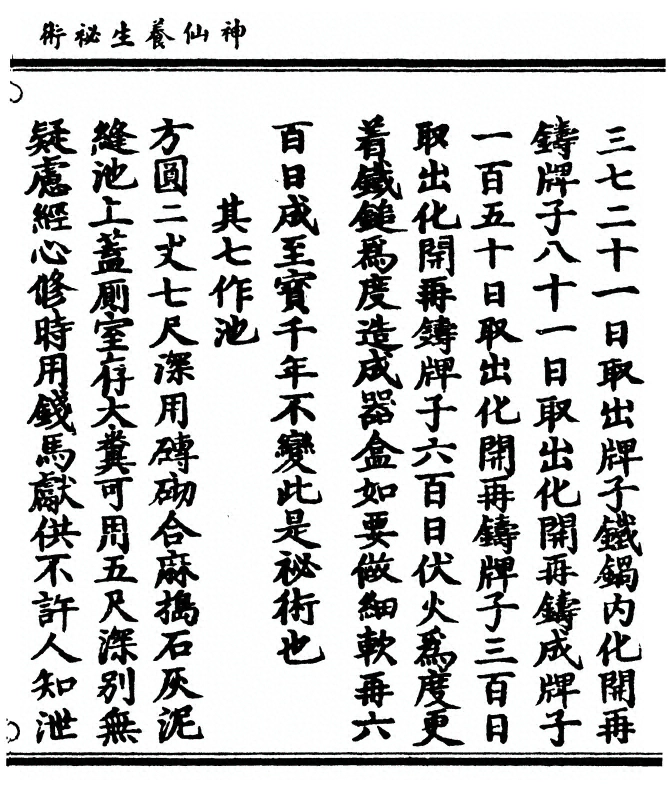 神仙養生祕術
三七二十一日取出牌子鐵鍋內化開再
鑄牌子八十一日取出化開再鑄成牌子
一百五十日取出化開再鑄牌子三百日
取出化開再鑄牌子六百日伏火爲度更
着鐵鎚爲度造成器盒如要做細軟再六
百日成至寳千年不變此是祕術也
其七作池
方圓二丈七尺深用磚砌合麻搗石灰泥
縫池上蓋厠室存大糞可用五尺深別無
疑慮經心修時用錢馬獻供不許人知泄